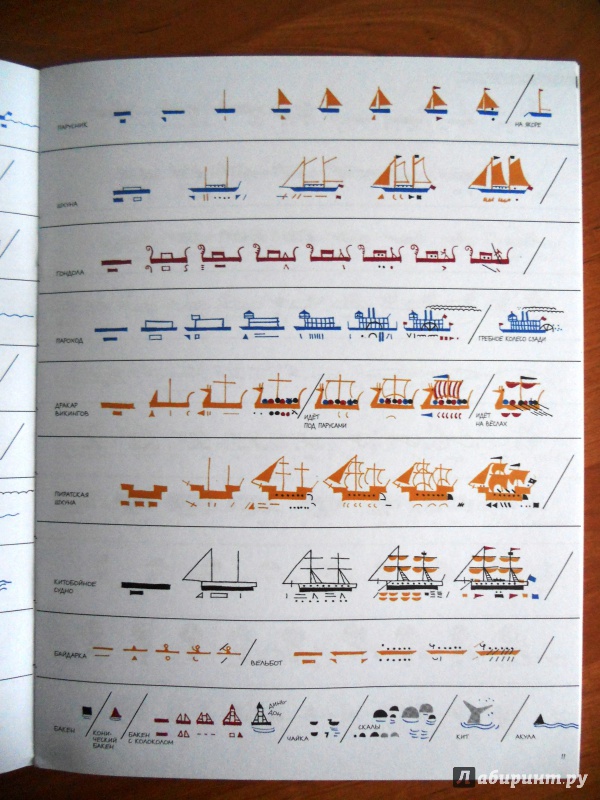 ПАРУСНИК
НА ЯКОРЕ
ШХУНА
ГОНДОЛА
ПАРОХОД
ГРЕБНОЕ КОЛЕСО СЗАДИ
ДРАКАР
ВИКИНГОВ
ИДЁТ
ПОД ПАРУСАМИ
ИДЁТ
НА ВЁСЛАХ
ПИРАТСКАЯ
ШХУНА
КИТОБОЙНОЕ
СУДНО
БАЙДАРКА
ВЕЛЬБОТ
БАКЕН
КОНИ-
ЧЕСКИЙ
БАКЕН
БАКЕН
С КОЛОКОЛОМ
ДИНЬ!
ДОН!
ЧАЙКА
СКАЛЫ
КИТ
АКУЛА
11
Лабиринт.ру